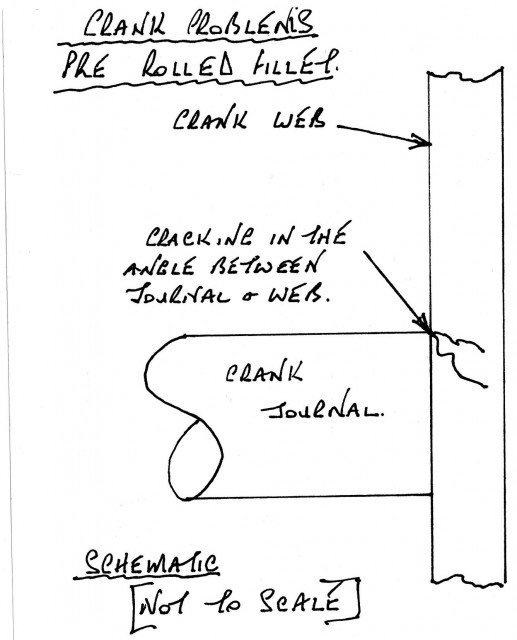 CRANK PROBLEMS
PRE ROLLED FILLET.
CRANK WEB
CRACKING IN THE
ANGLE BETWEEN
JOURNAL & WEB.
CRANK
JOURNAL.
SCHEMATIC
[NOT TO SCALE]